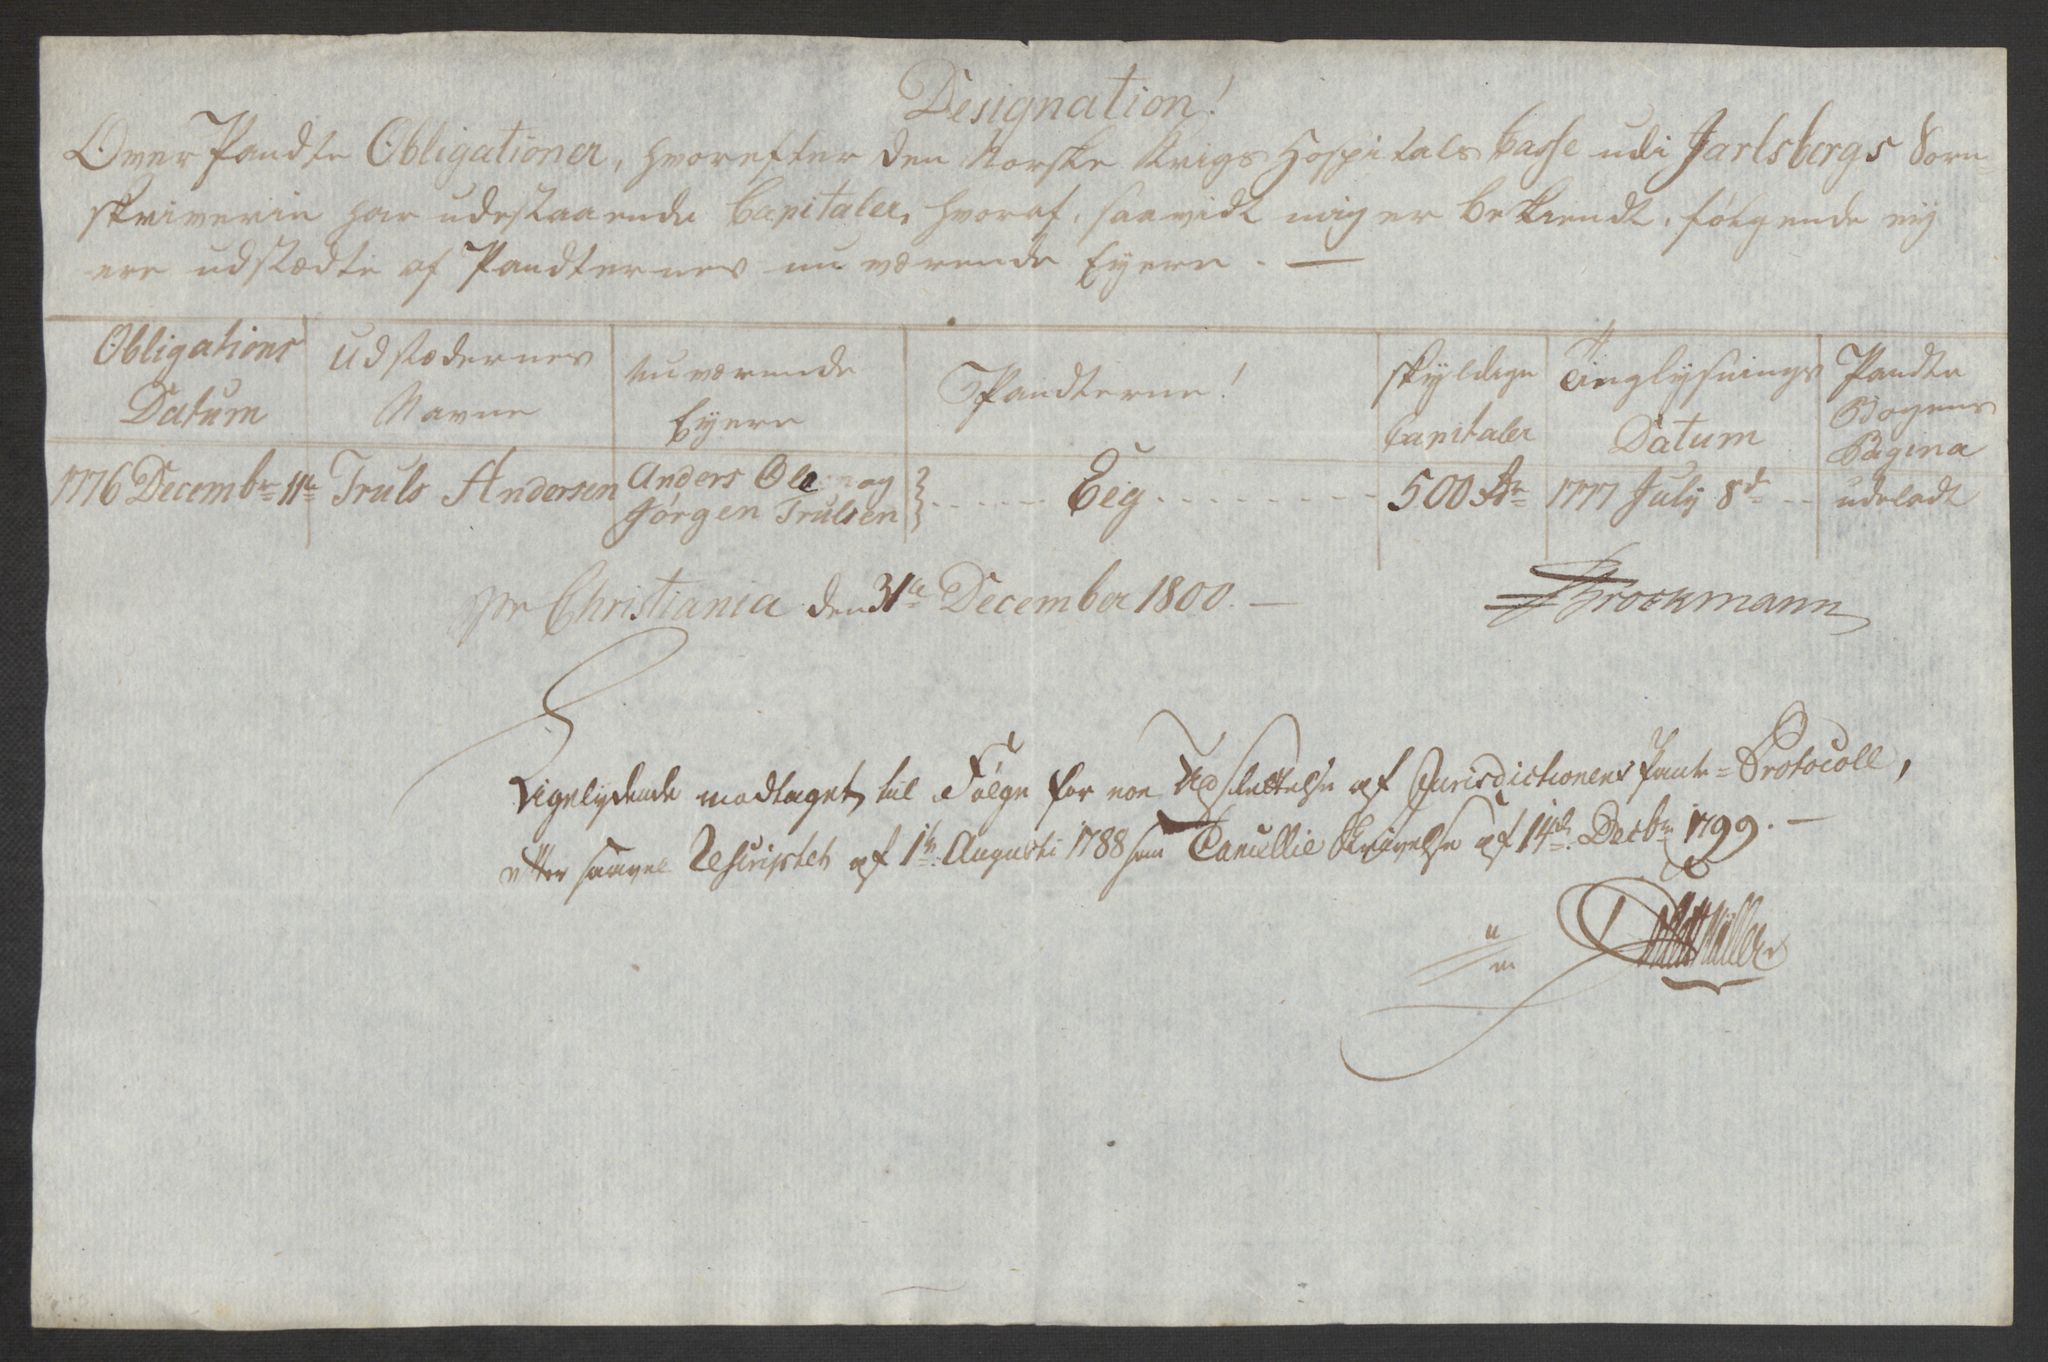 Designation!
Over Pandte Obligationer, hvorefter den Norske Krigs Hospitals Casse udi Jarlsbergs Soren-
skriverie har udestaaende Capitaler, hvoraf, saavidt mig er bekiendt, følgende ej
ere udstædte af Pandternes nu værende Eyere. —
Obligations Datum | Udstædernes Navne | Nuværende Eyere | Pandterne! | Skyldige Capitaler | Tinglysnings Datum | Pandte Bogens Pagina
1776 Decembr 11te | Truls Andersen | Anders Olsen og Jørgen Trulsen | Eeg | 500 Rdr | 1777 July 8de | udeladt
pr Christiania den 31te December 1800. —
Brockmann
Ligelydende modtaget, til Følge for ene Udslettelse af Jurisdictionens Pante-Protocoll,
efter saavel Rescriptet af 1te Augusti 1788 som Cancellie Skrivelse af 14de Decbr 1799. —
Müller